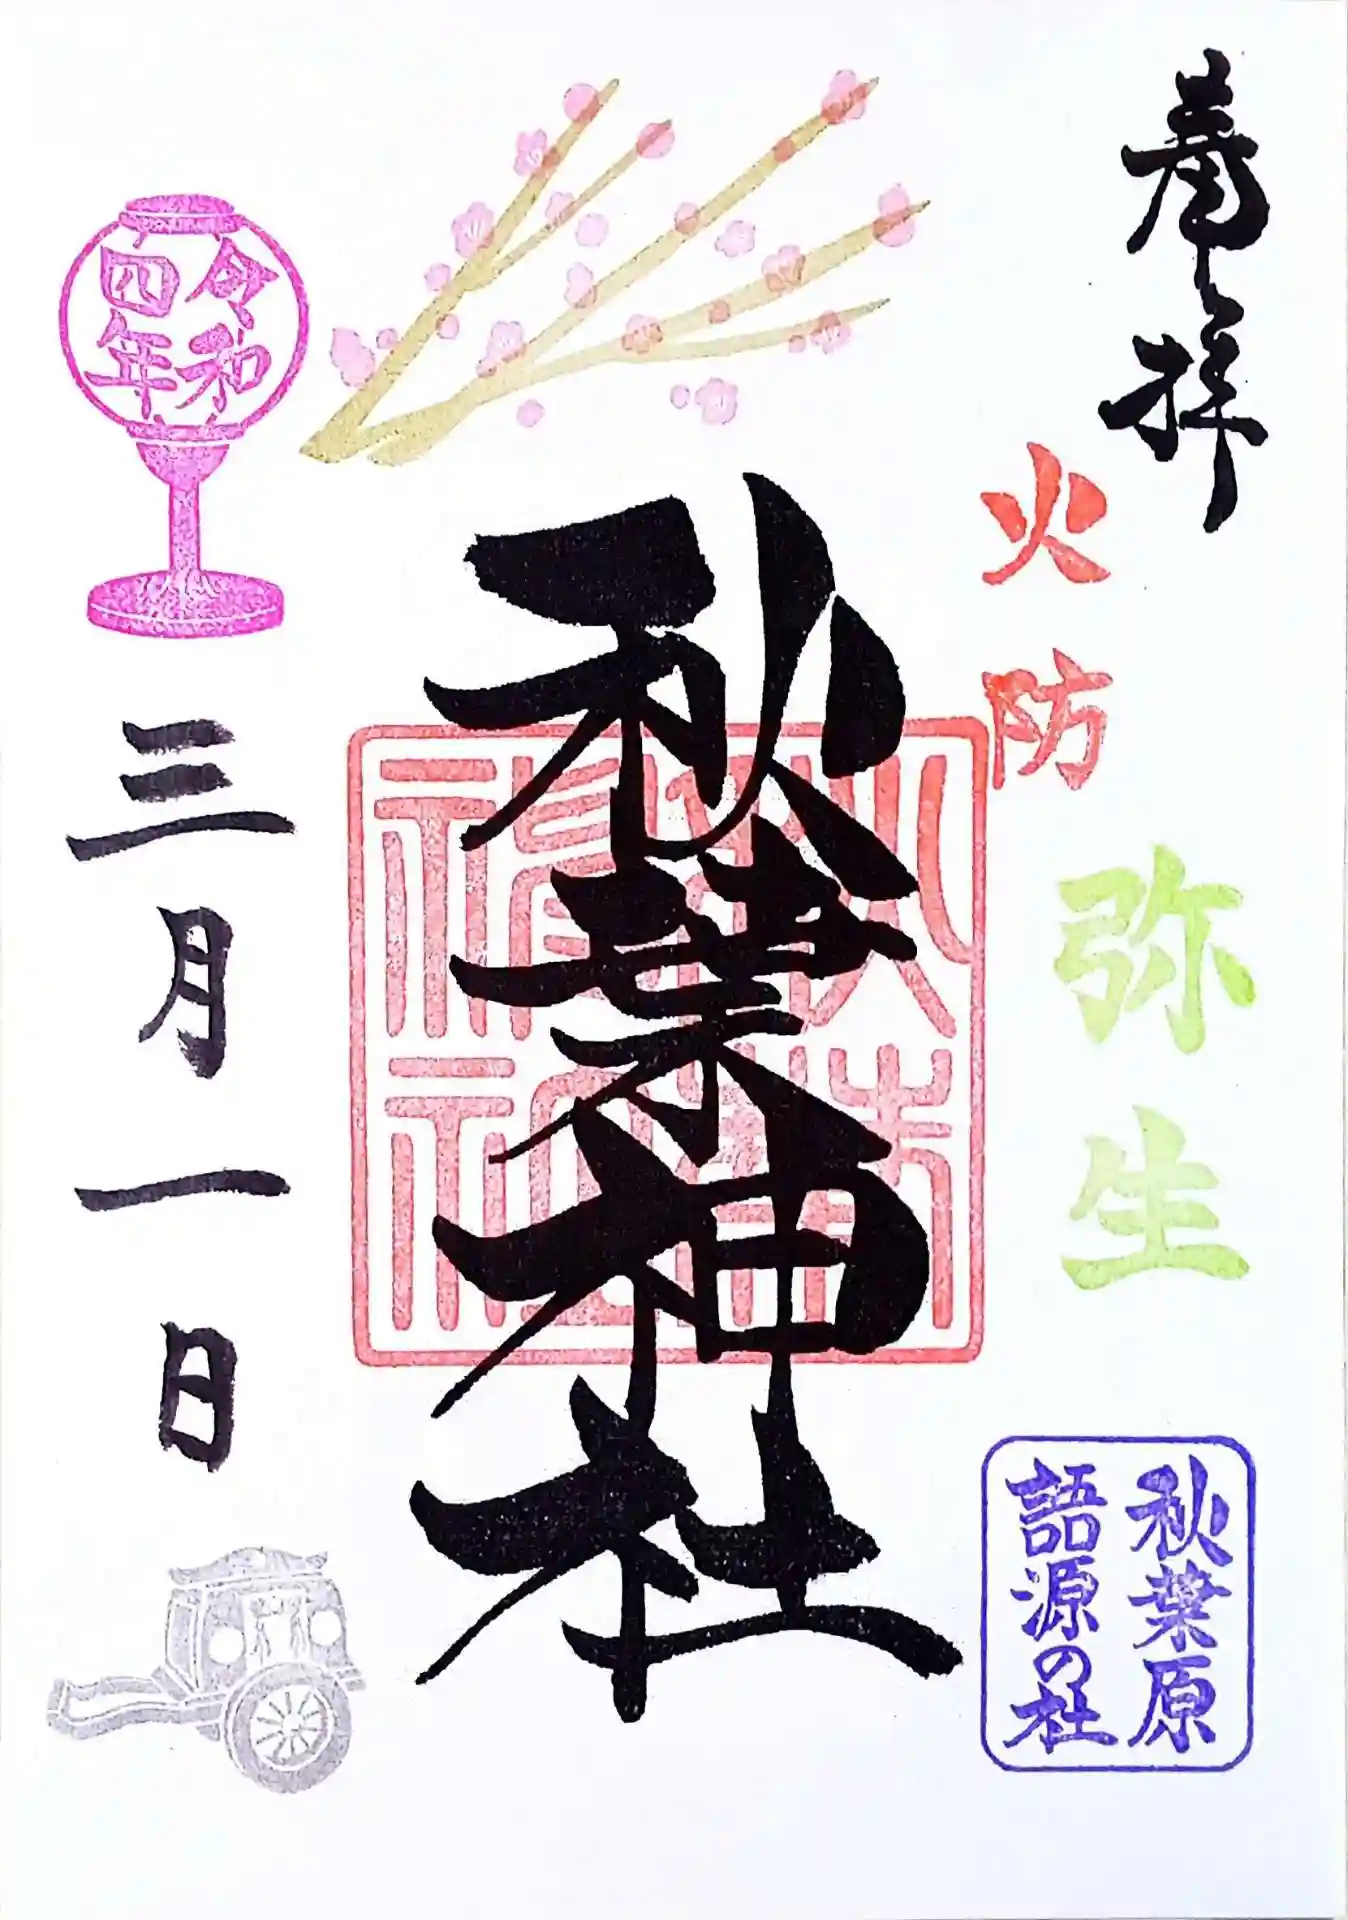 奉拝
火防
弥生
秋葉原
語源の社
秋葉神社
秋葉
神社
令和
四年
三月一日